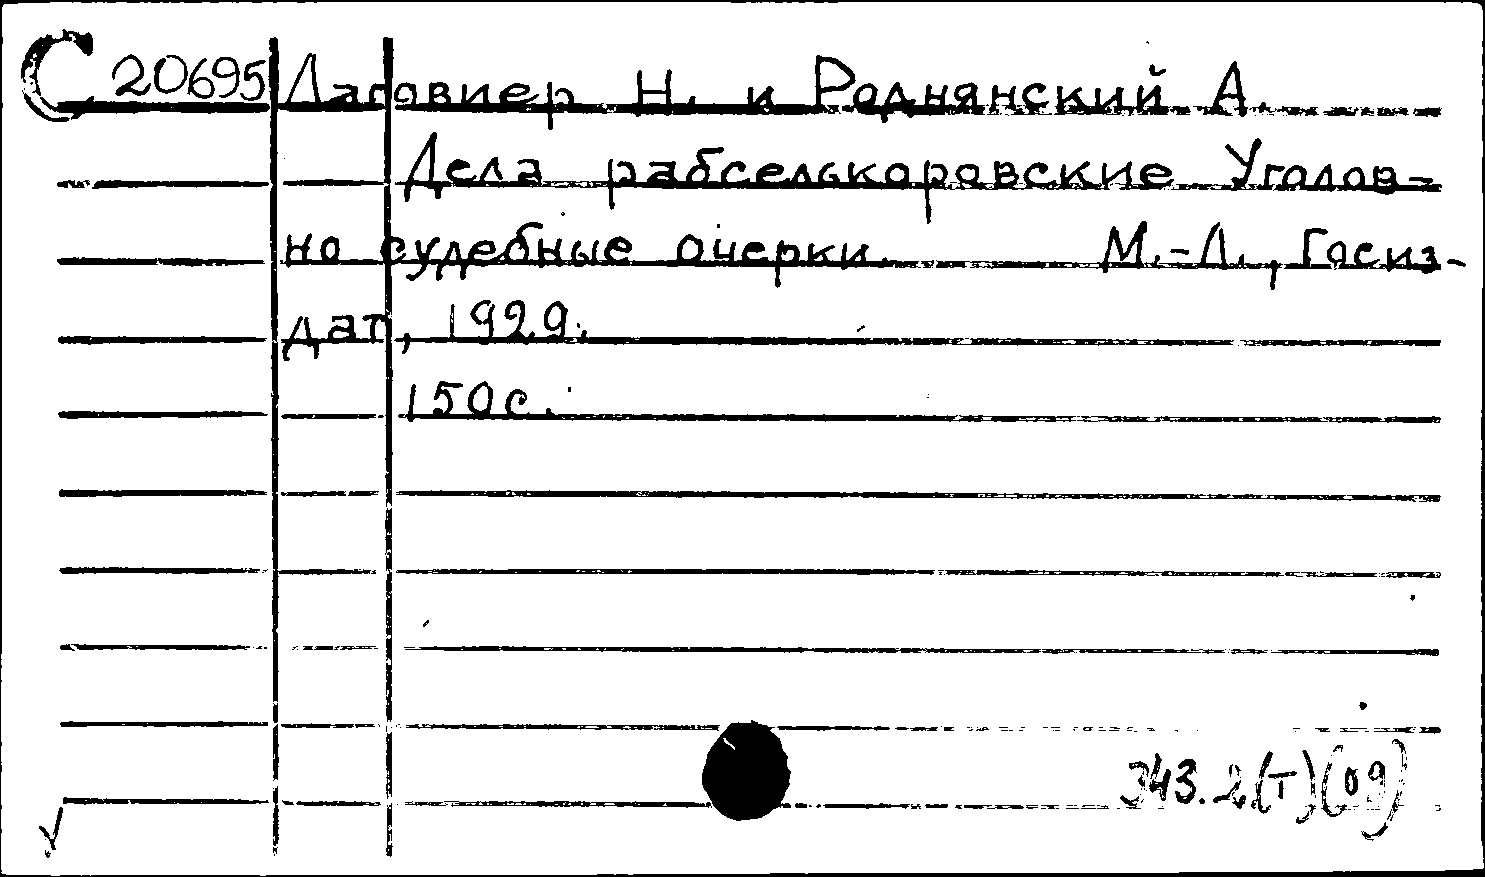 С 20695 Лаговиер Н. и Роднянский А.
Дела рабселькоровские Уголов-
но судебные очерки. М.-Л., Госиз-
дат, 1929.
150с.
343.2(Т)(09)